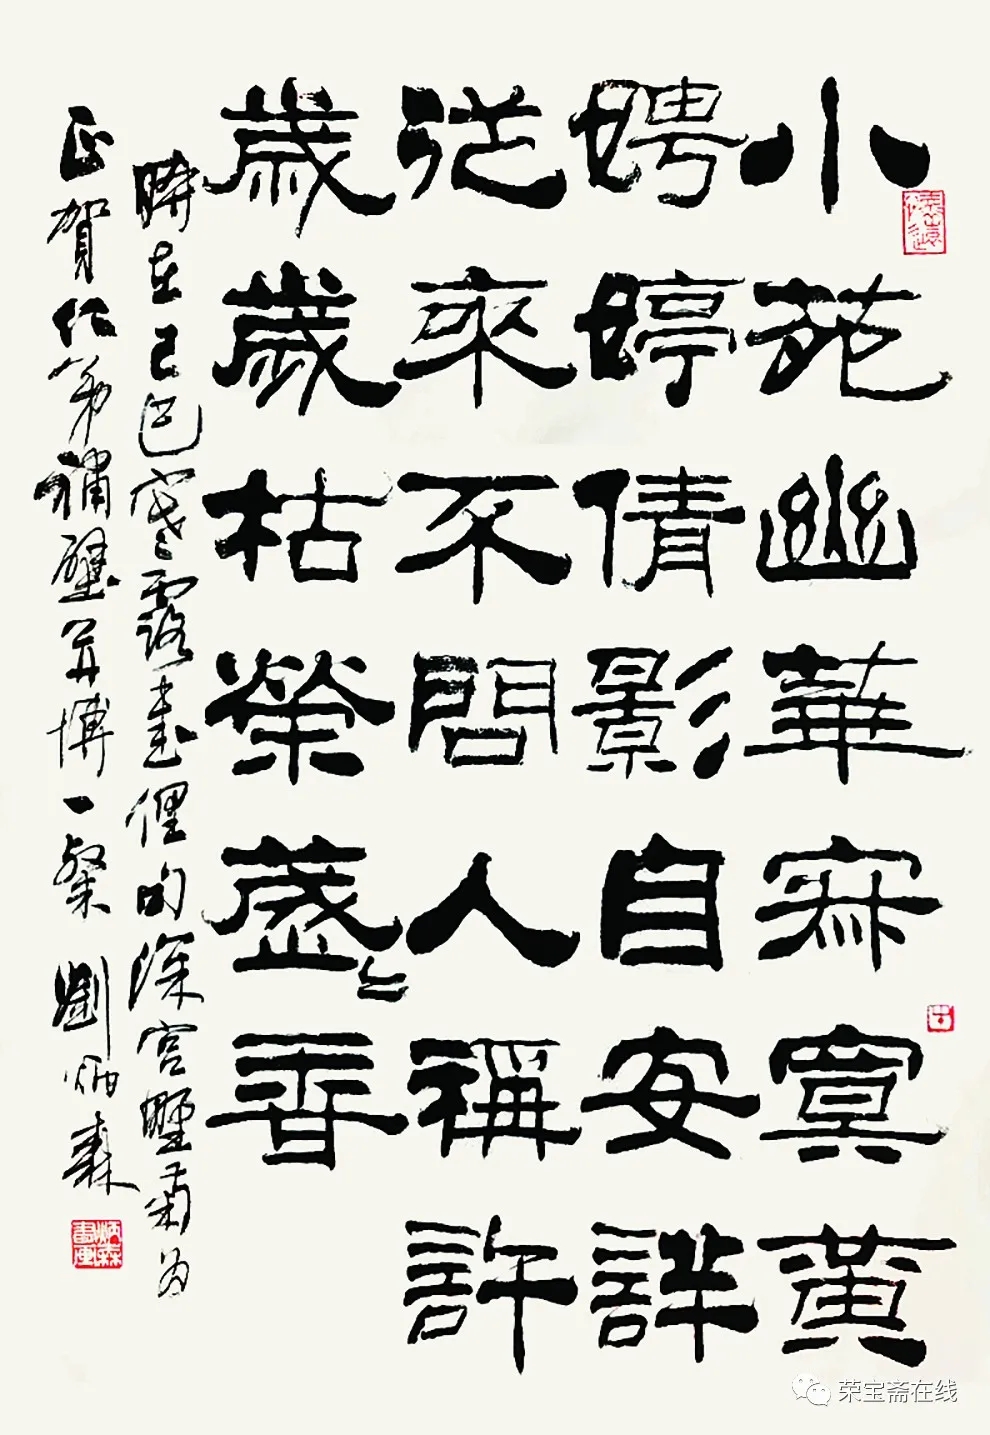 小苑幽華寂寞黃
娉婷倩影自安詳
從來不問人稱許
歲歲枯榮香
時在己巳寒露書俚句深宮野菊為
正賀仁弟補壁并博一粲 劉炳森
荣宝斋在线